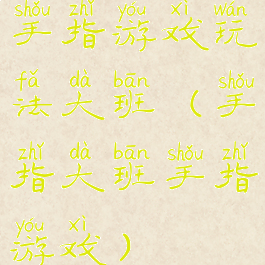 shǒu zhǐ yóu xì wán
手指游戏玩
fǎ dà bān shǒu
法大班（手
zhǐ dà bān shǒu zhǐ
指大班手指
yóu xì
游戏）